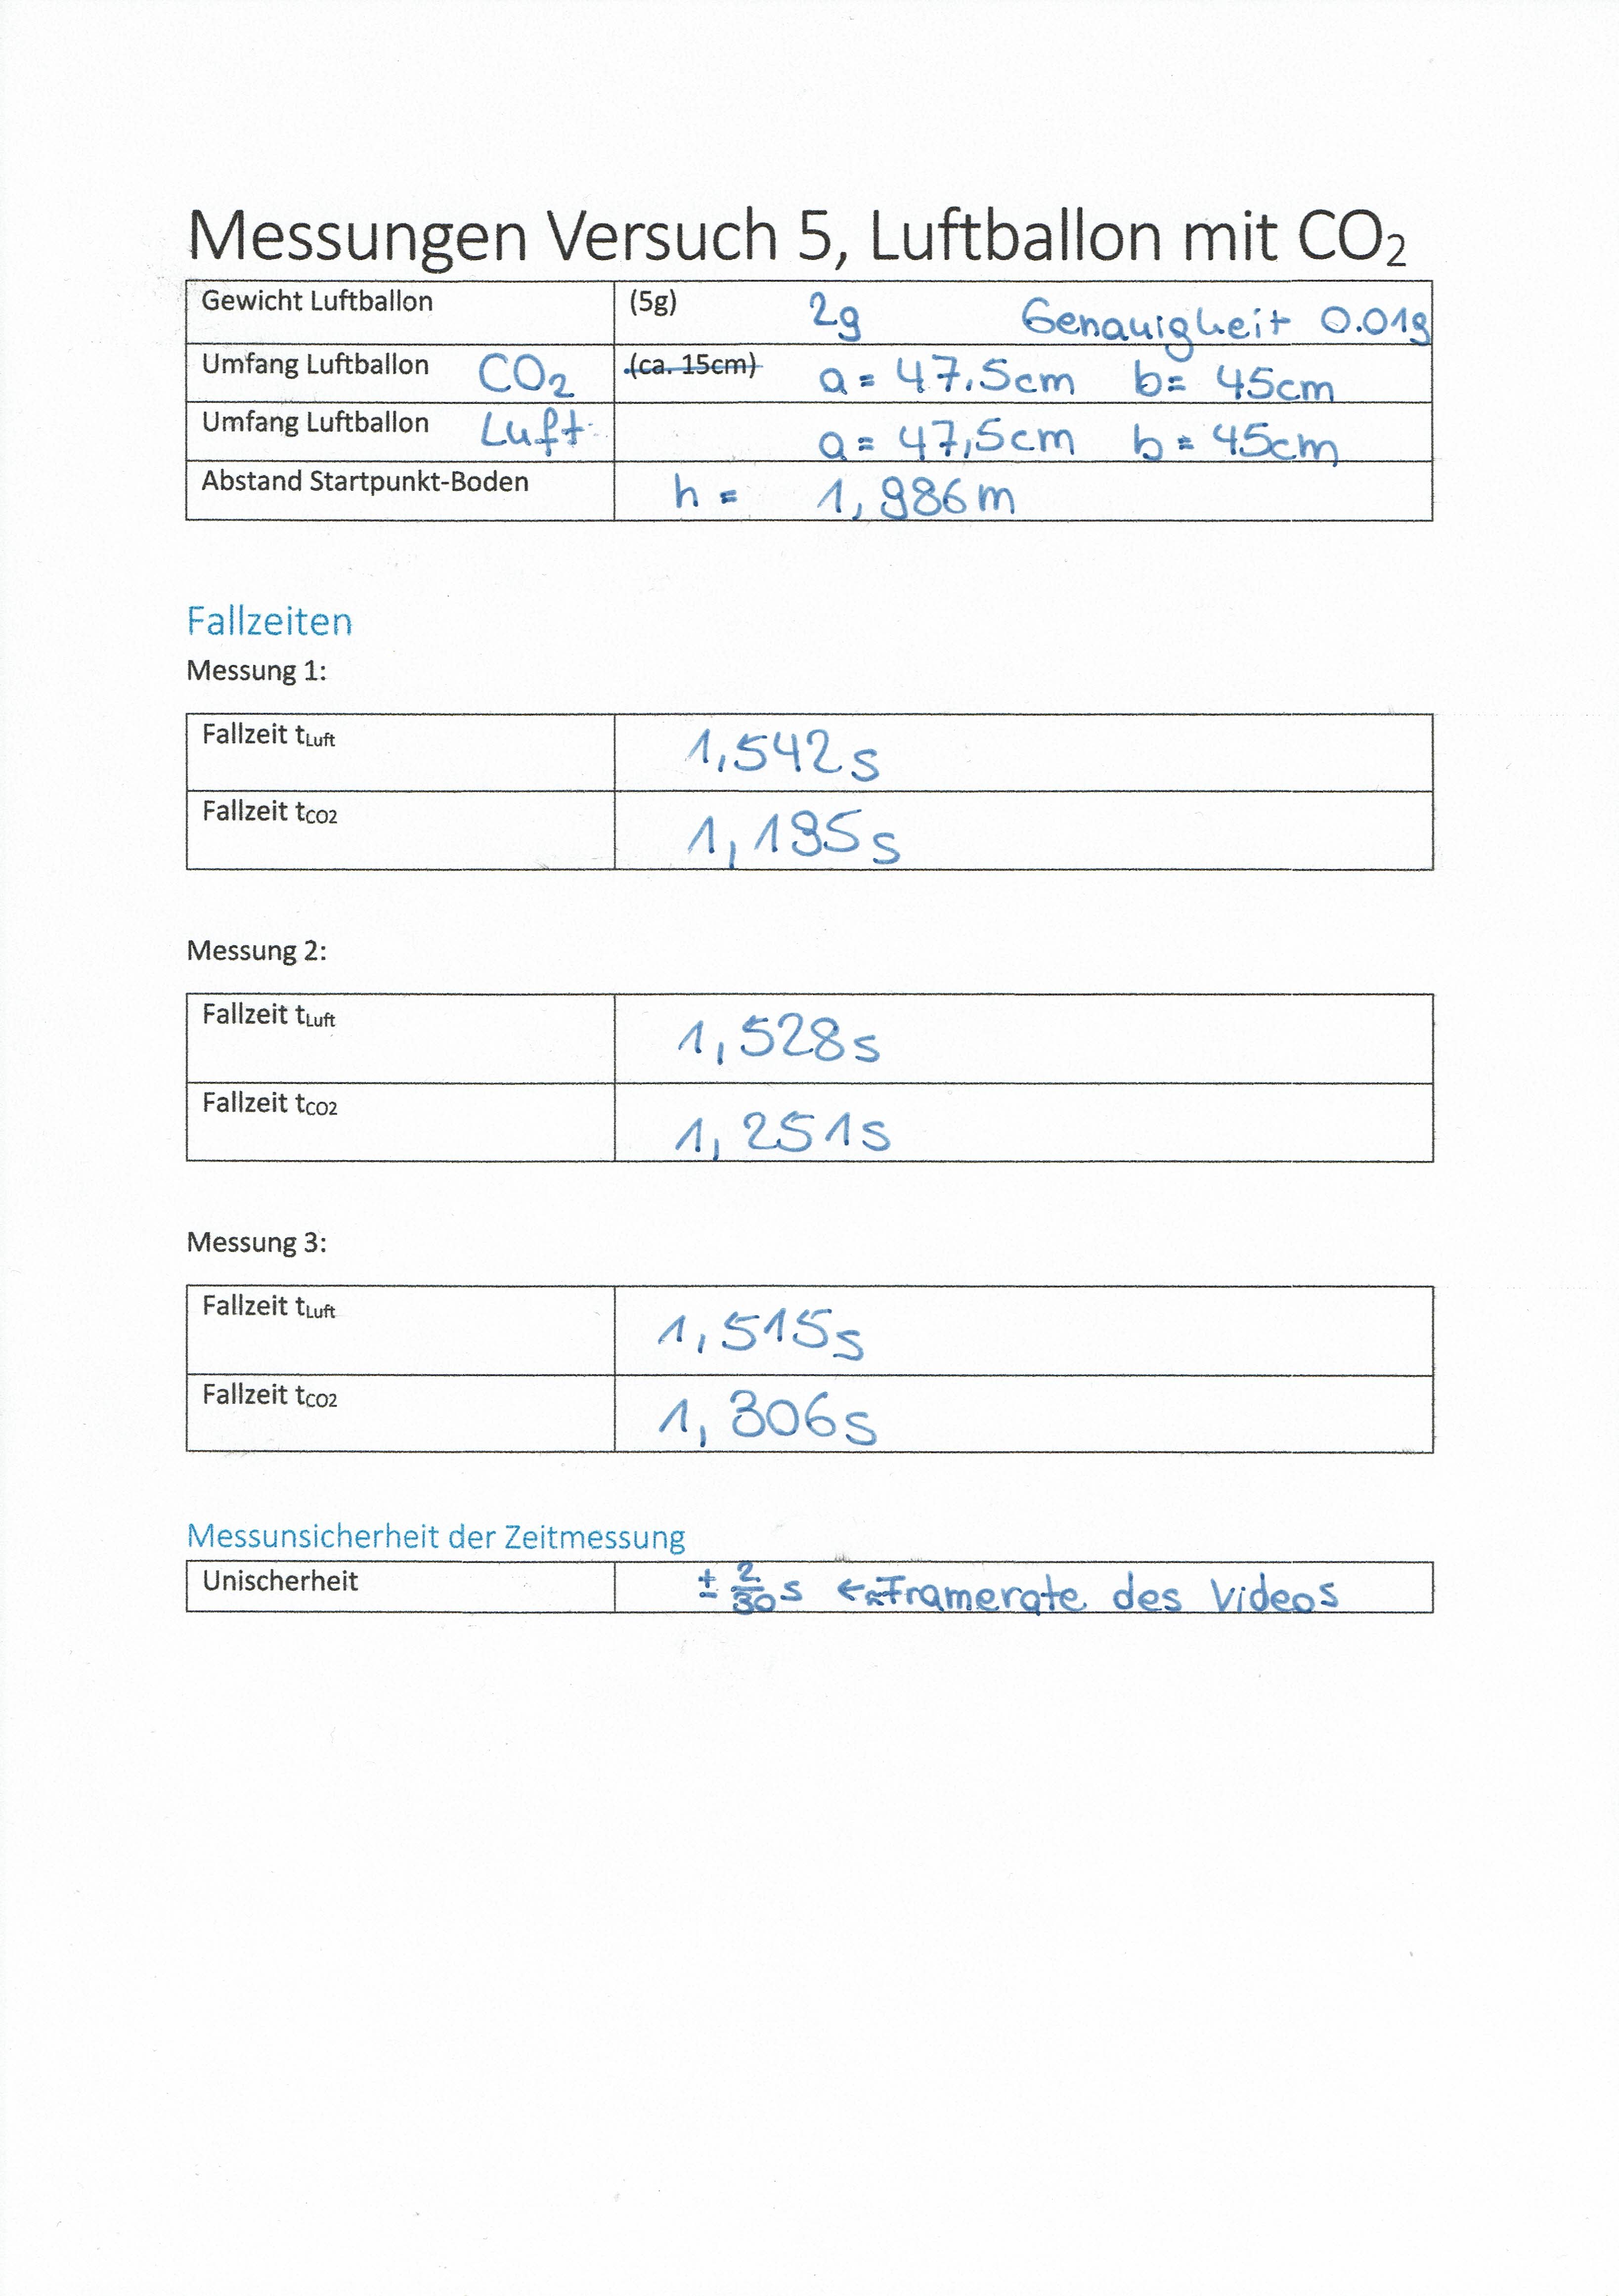 Messungen Versuch 5, Luftballon mit CO2
Gewicht Luftballon (5g) 2g Genauigkeit 0.01g
Umfang Luftballon CO2 (ca. 15cm) a = 47.5cm b= 45cm
Umfang Luftballon Luft a = 47,5cm b = 45cm
Abstand Startpunkt-Boden h = 1,986m
Fallzeiten
Messung 1:
Fallzeit tLuft 1,542s
Fallzeit tCO2 1,195s
Messung 2:
Fallzeit tLuft 1,528s
Fallzeit tCO2 1,251s
Messung 3:
Fallzeit tLuft 1,515s
Fallzeit tCO2 1,306s
Messunsicherheit der Zeitmessung
Unischerheit ± 2/30 s ← Framerate des Videos